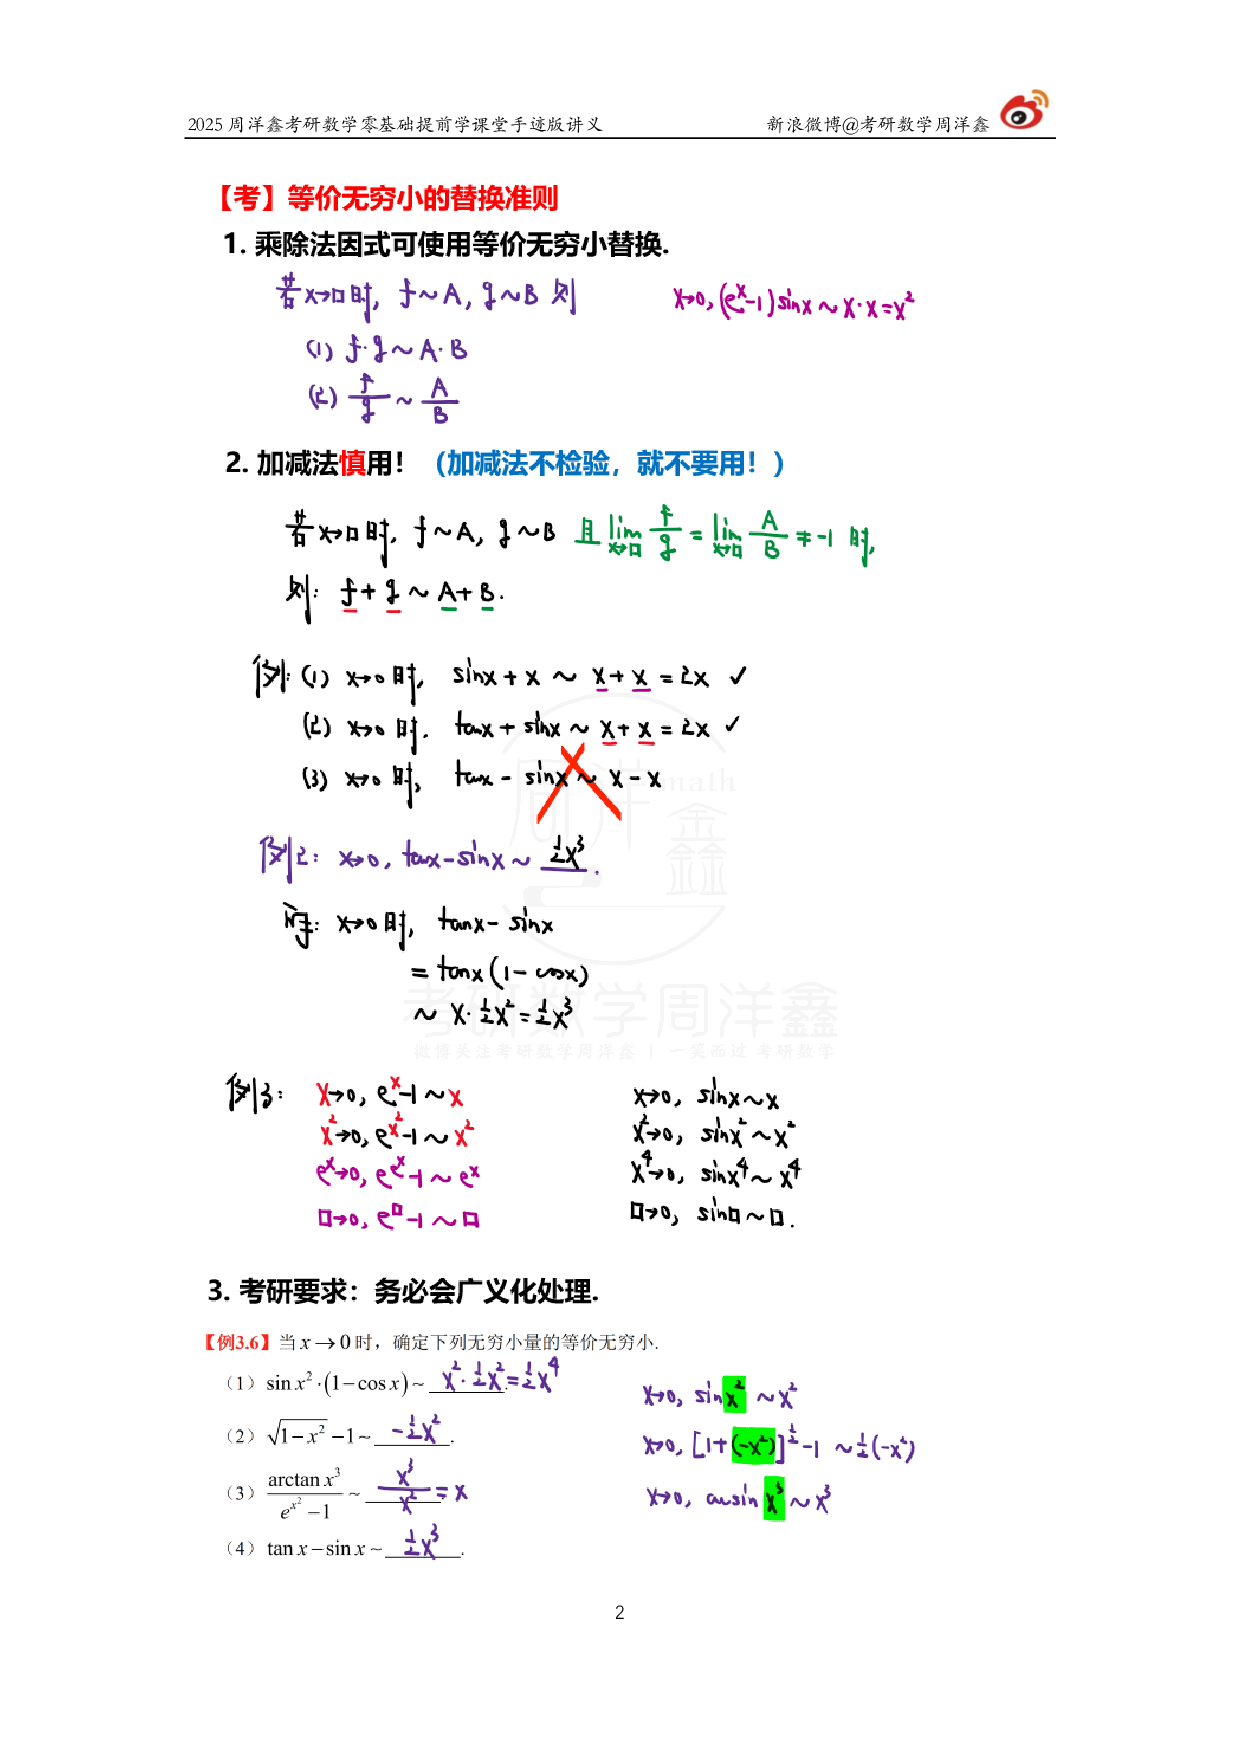 2025 周洋鑫考研数学零基础提前学课堂手迹版讲义 新浪微博@考研数学周洋鑫
【考】等价无穷小的替换准则
1. 乘除法因式可使用等价无穷小替换.
若x→□时, f~A, g~B 则 x→0, (eˣ-1)sinx~x·x=x²
(1) f·g~A·B
(2) f/g ~ A/B
2. 加减法慎用！（加减法不检验，就不要用！）
若x→□时, f~A, g~B 且 lim_{x→□} f/g = lim_{x→□} A/B ≠ -1 时,
则: f+g ~ A+B.
例: (1) x→0时, sinx+x ~ x+x=2x ✓
(2) x→0时. tanx+sinx ~ x+x=2x ✓
(3) x→0时, tanx-sinx ~ x-x
例2: x→0, tanx-sinx ~ ½x³.
解: x→0时, tanx-sinx
=tanx(1-cosx)
~ x·½x²=½x³
考研数学周洋鑫
微博关注考研数学周洋鑫 | 一笑而过 考研数学
例3: x→0, eˣ-1~x x→0, sinx~x
x²→0, e^{x²}-1~x² x²→0, sinx²~x²
eˣ→0, e^{eˣ}-1~eˣ x⁴→0, sinx⁴~x⁴
□→0, e^□-1~□ □→0, sin□~□.
3. 考研要求：务必会广义化处理.
【例3.6】当 x→0 时，确定下列无穷小量的等价无穷小.
（1）sin x²·(1−cos x)~ x²·½x²=½x⁴. x→0, sinx²~x²
（2）√(1−x²) −1~ -½x². x→0, [1+(-x²)]^{½}-1 ~½(-x²)
（3）arctan x³/(e^{x²}−1) ~ x³/x² = x x→0, arcsin x³~x³
（4）tan x−sin x~ ½x³.
2
周洋鑫 math